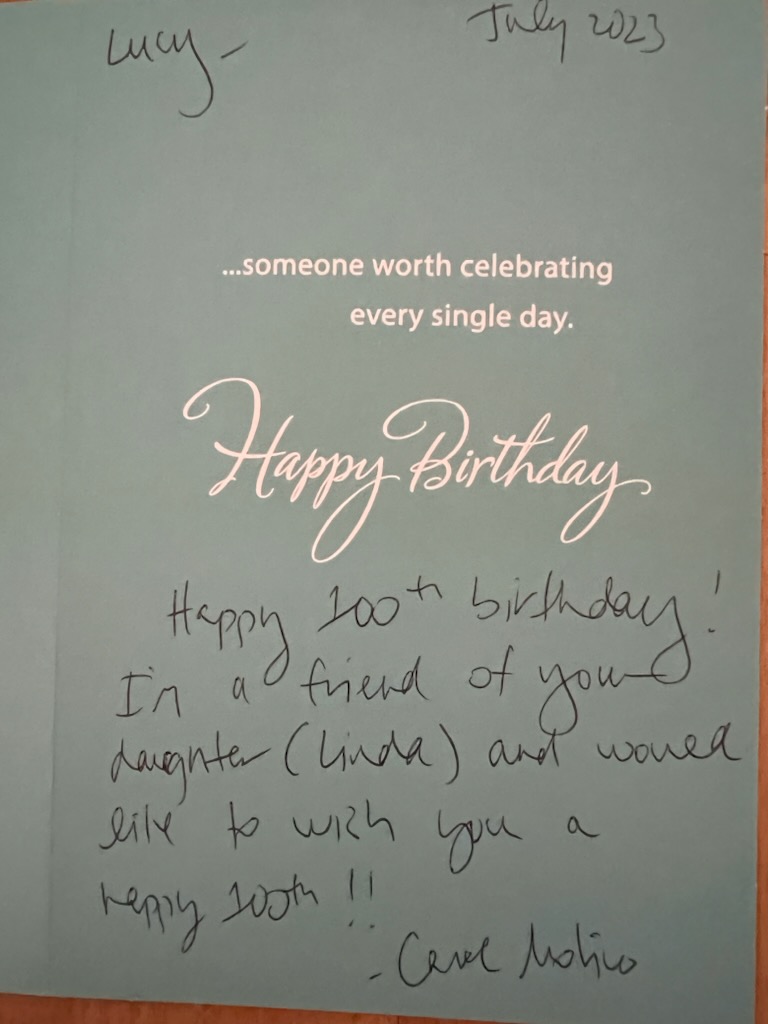 Lucy - July 2023
...someone worth celebrating
every single day.
Happy Birthday
Happy 100th birthday!
I'm a friend of your
daughter (Linda) and would
like to wish you a
happy 100th !!
- Carol